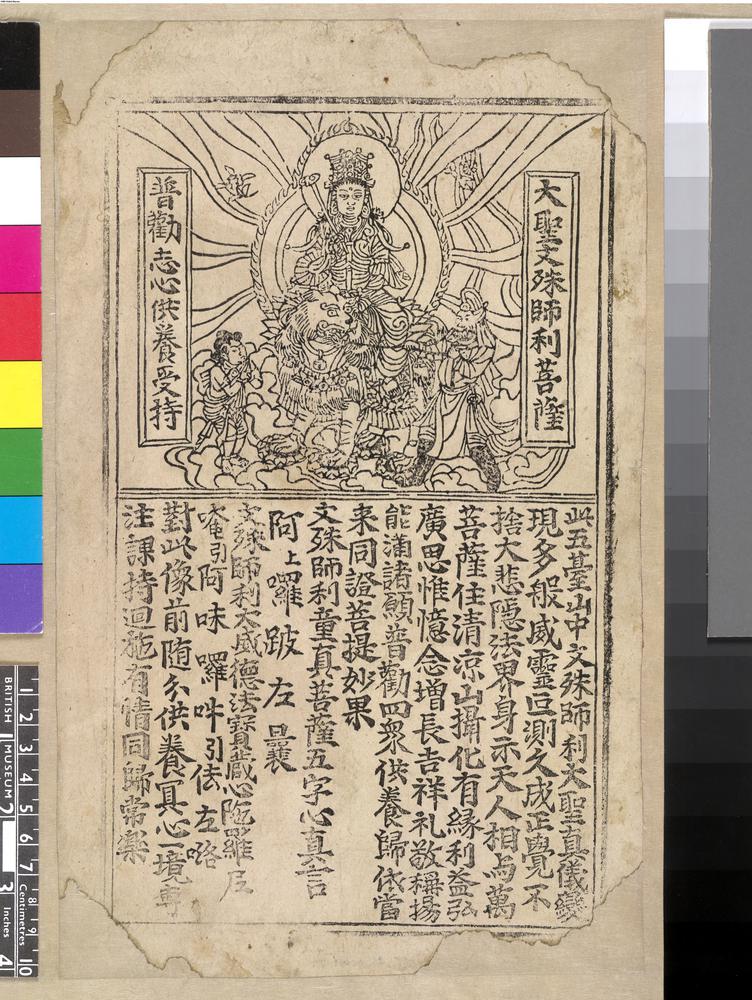 大聖文殊師利菩薩
普勸志心供養受持
此五臺山中文殊師利大聖真儀變
現多般威靈叵測久成正覺不
捨大悲隱法界身示天人相与萬
菩薩住清涼山攝化有緣利益弘
廣思惟憶念增長吉祥礼敬稱揚
能滿諸願普勸四衆供養歸依當
来同證菩提妙果
文殊師利童真菩薩五字心真言
阿上囉跛左曩
文殊師利大威德法寶藏心陁羅尼
唵引阿味囉吽引佉左咯
對此像前随分供養冥心一境專
注課持迴施有情同歸常樂
BRITISH MUSEUM
1 2 3 4 5 6 7 8 9 10
Centimetres
2 3 4
Inches